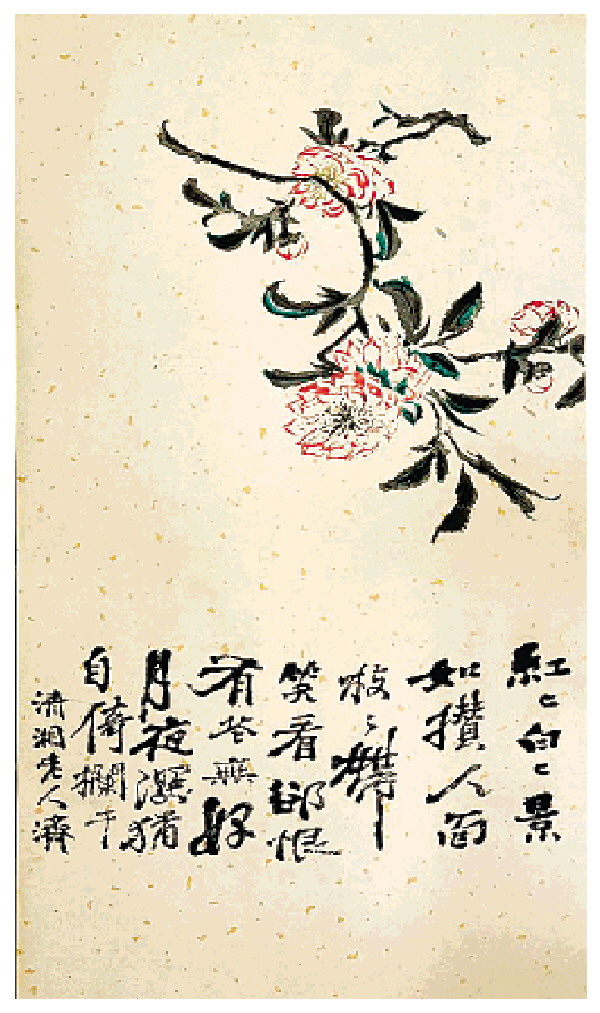 紅〻白〻景
如攢人面
枝〻帶
笑看郤恨
有苔無好
月夜深猶
自倚欄干
清湘老人濟